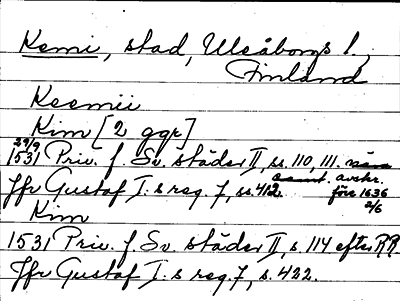 Kemi, stad, Uleåborgs l.,
Finland
Keemii
Kim [2 ggr]
29/9
1531 Priv. f. Sv. städer II, ss. 110, 111.
samt. avskr.
Jfr Gustaf I:s reg. 7, ss. 412. före 1636
2/6
Kim
1531 Priv. f. Sv. städer II, s. 114 efter RR.
Jfr Gustaf I:s reg. 7, s. 422.